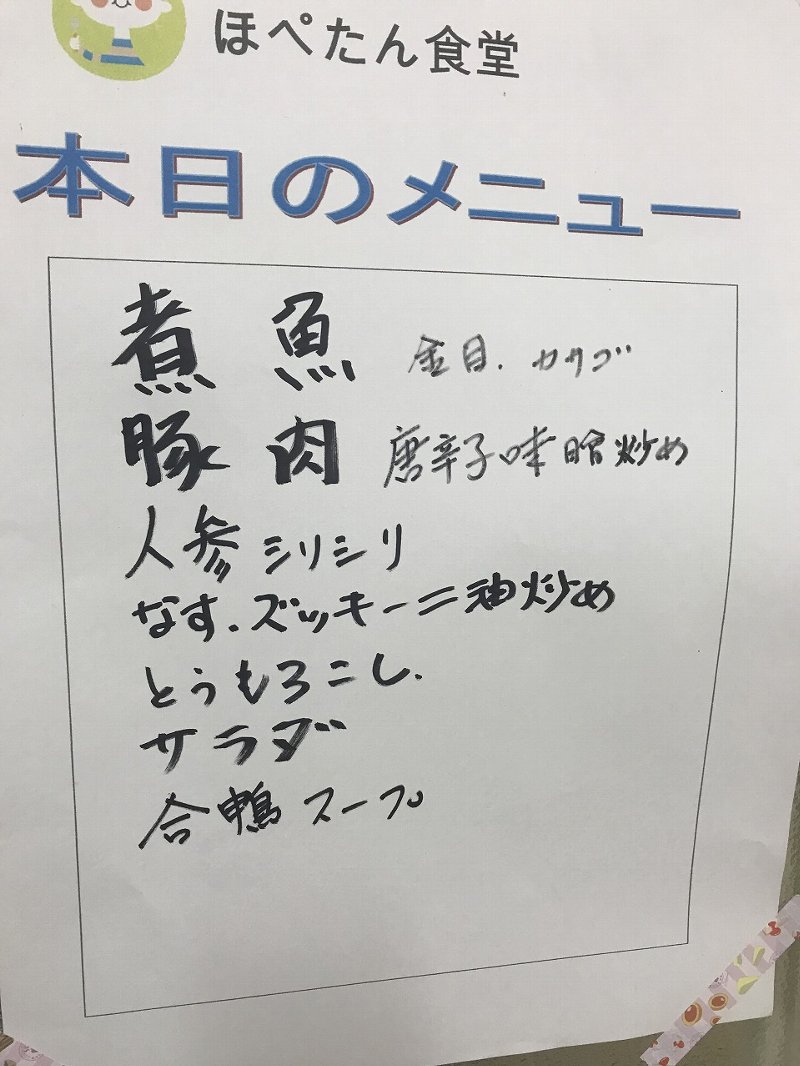 ほぺたん食堂
本日のメニュー
煮魚 金目.カサゴ
豚肉 唐辛子味噌炒め
人参シリシリ
なす.ズッキーニ油炒め
とうもろこし.
サラダ
合鴨スープ